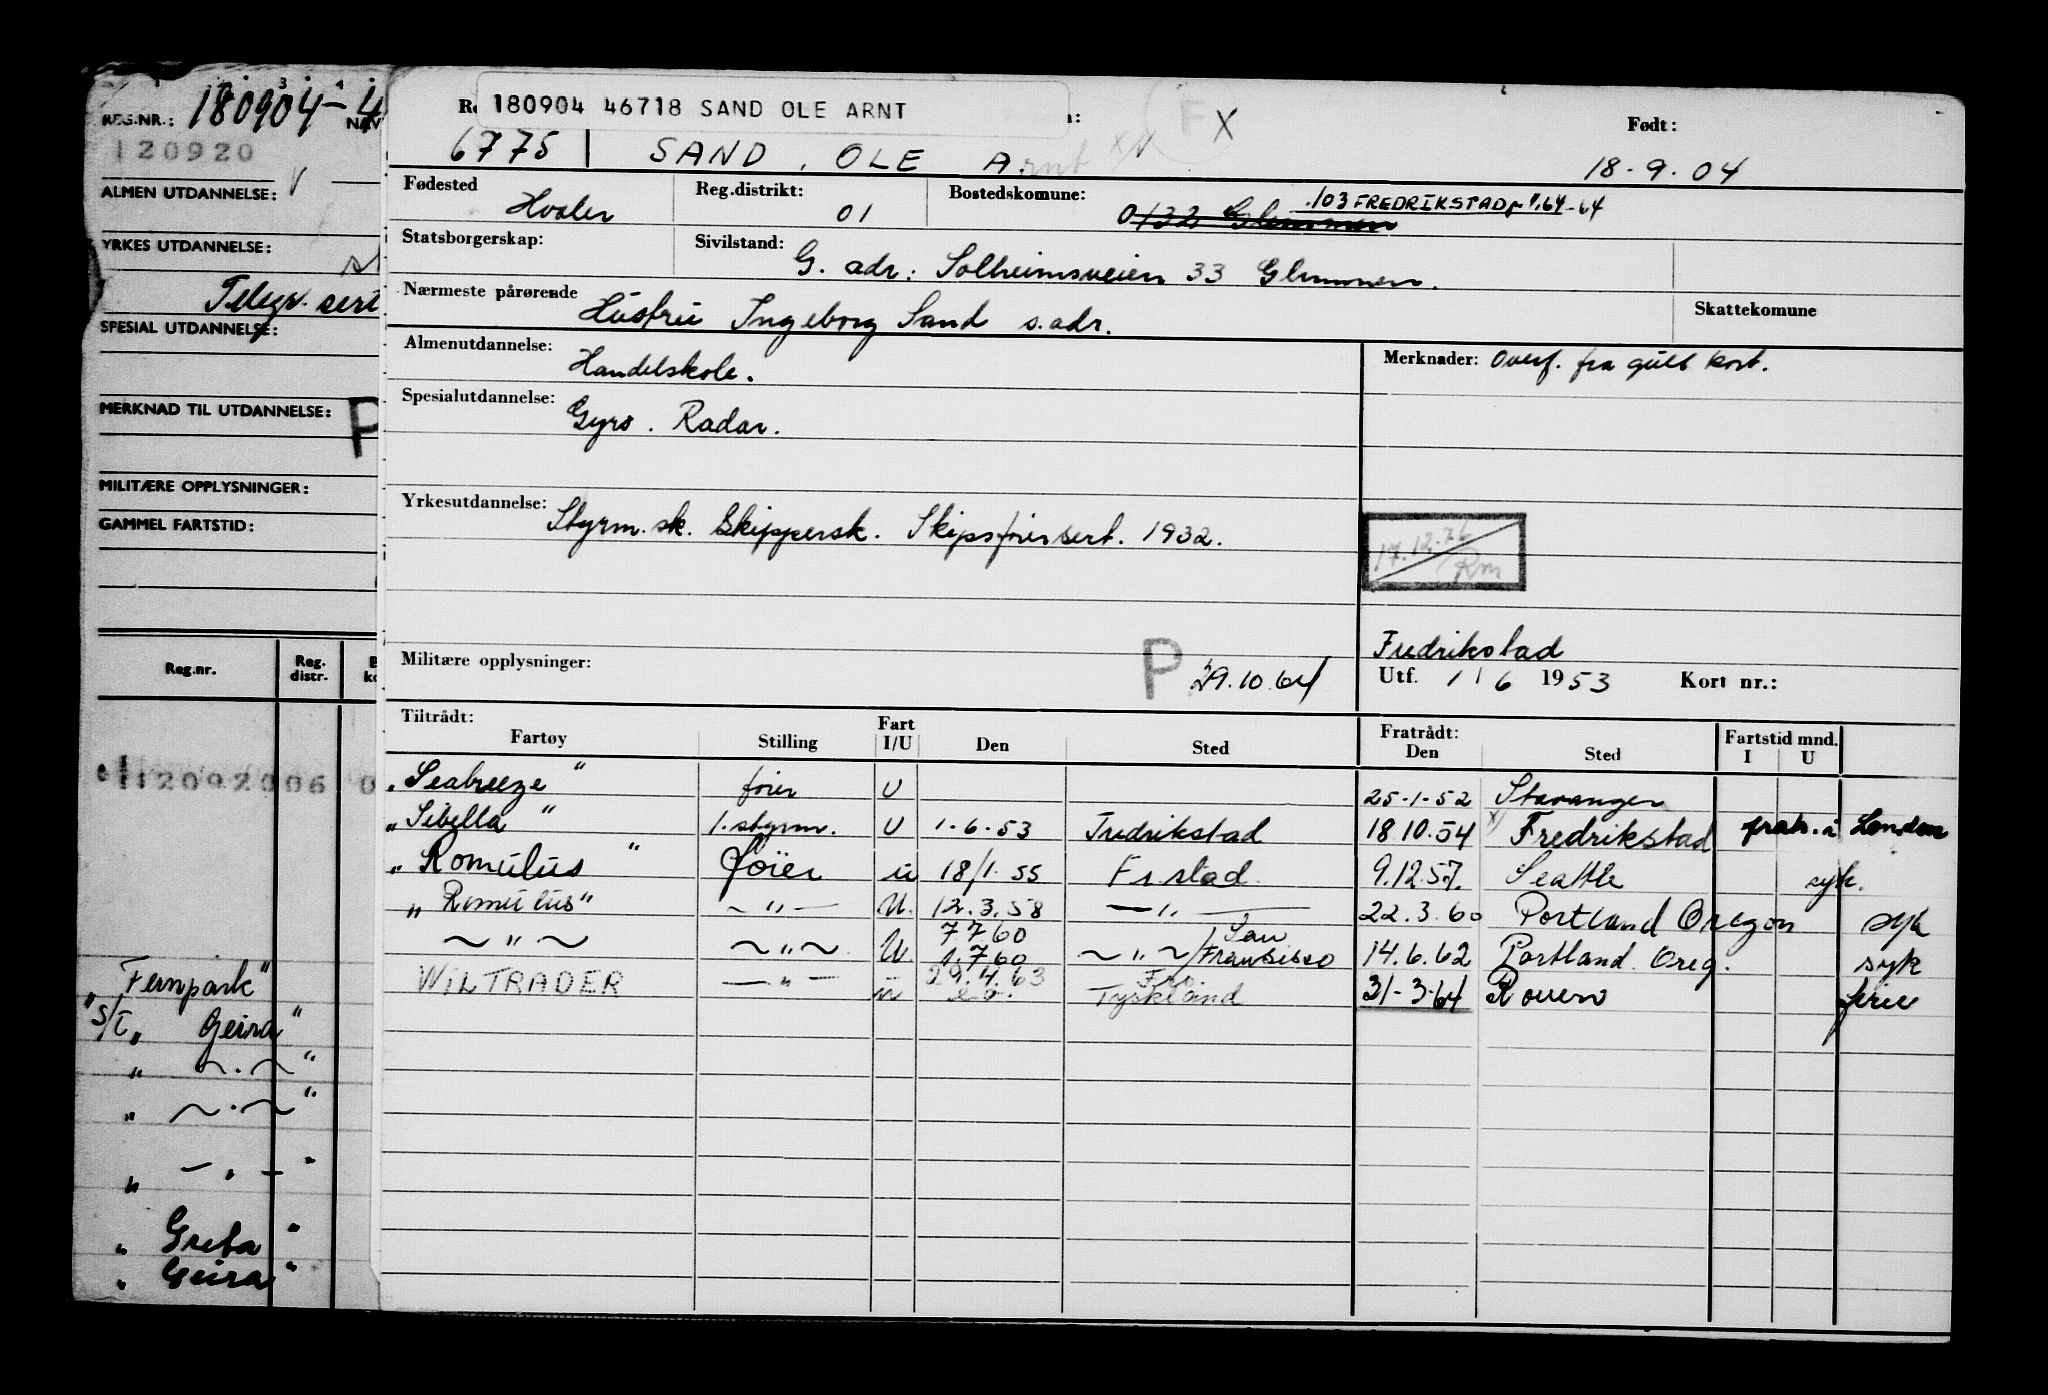 REG.NR.: 180904-4
NAV
120920
ALMEN UTDANNELSE: V
YRKES UTDANNELSE:
Telegr. sert
SPESIAL UTDANNELSE:
MERKNAD TIL UTDANNELSE: P
MILITÆRE OPPLYSNINGER:
GAMMEL FARTSTID:
Reg.nr. Reg. distr.
12092006 0
Fernpark"
"S/T „ Geira "
„ ~ . ~ "
„ ~ . ~ "
„ — „ — "
„ Greta "
„ Geira "
180904 46718 SAND OLE ARNT
X
Født:
6775 SAND, OLE Arnt
18-9-04
Fødested Hvaler
Reg.distrikt: 01
Bostedskomune: 0132 Glemmen
.103 FREDRIKSTAD
Statsborgerskap:
Sivilstand: G. adr: Solheimsveien 33 Glemmen.
Nærmeste pårørende Hustru Ingeborg Sand s. adr.
Skattekomune
Almenutdannelse: Handelskole.
Merknader: Overf. fra gult kort.
Spesialutdannelse: Gyro. Radar.
Yrkesutdannelse: Styrm.sk. Skippersk. Skipsførersert. 1932.
17.12.76
Rm
Militære opplysninger: P 29.10.64
Fredrikstad
Utf. 1/6 1953 Kort nr.:
Tiltrådt: Fartøy Stilling Fart I/U Den Sted Fratrådt: Den Sted Fartstid mnd. I U
„Seabreeze" fører U 25-1-52 Stavanger
„Sibella" 1.styrm. U 1-6-53 Fredrikstad 18 10.54 x/ Fredrikstad fratr. i London
„Romulus" fører u 18/1.55 Fr.stad 9.12.57. Seattle syk.
„Romulus" ~ " — U. 12.3.58 — " — 22.3.60 Portland Oregon syk
~ " ~ ~ " ~ U. 7 7.60 1.7 60 ~ " ~ / San Fransisso 14.6.62 Portland. Oreg. syk
WILTRADER — " — u 29.4.63 Tyskland 31-3-64 Rouen ferie